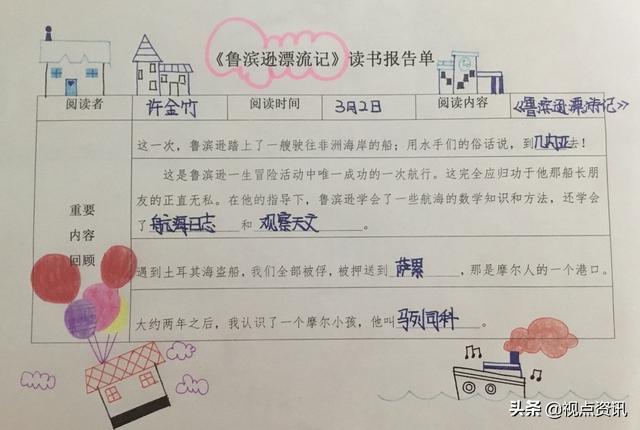 《鲁滨逊漂流记》读书报告单
阅读者 许金竹 阅读时间 3月2日 阅读内容 《鲁滨逊漂流记》
重要
内容
回顾
这一次，鲁滨逊踏上了一艘驶往非洲海岸的船；用水手们的俗话说，到几内亚去！
这是鲁滨逊一生冒险活动中唯一成功的一次航行。这完全应归功于他那船长朋
友的正直无私。在他的指导下，鲁滨逊学会了一些航海的数学知识和方法，还学会
了航海日志和观察天文。
遇到土耳其海盗船，我们全部被俘，被押送到萨累，那是摩尔人的一个港口。
大约两年之后，我认识了一个摩尔小孩，他叫马列司科。
头条 @视点资讯